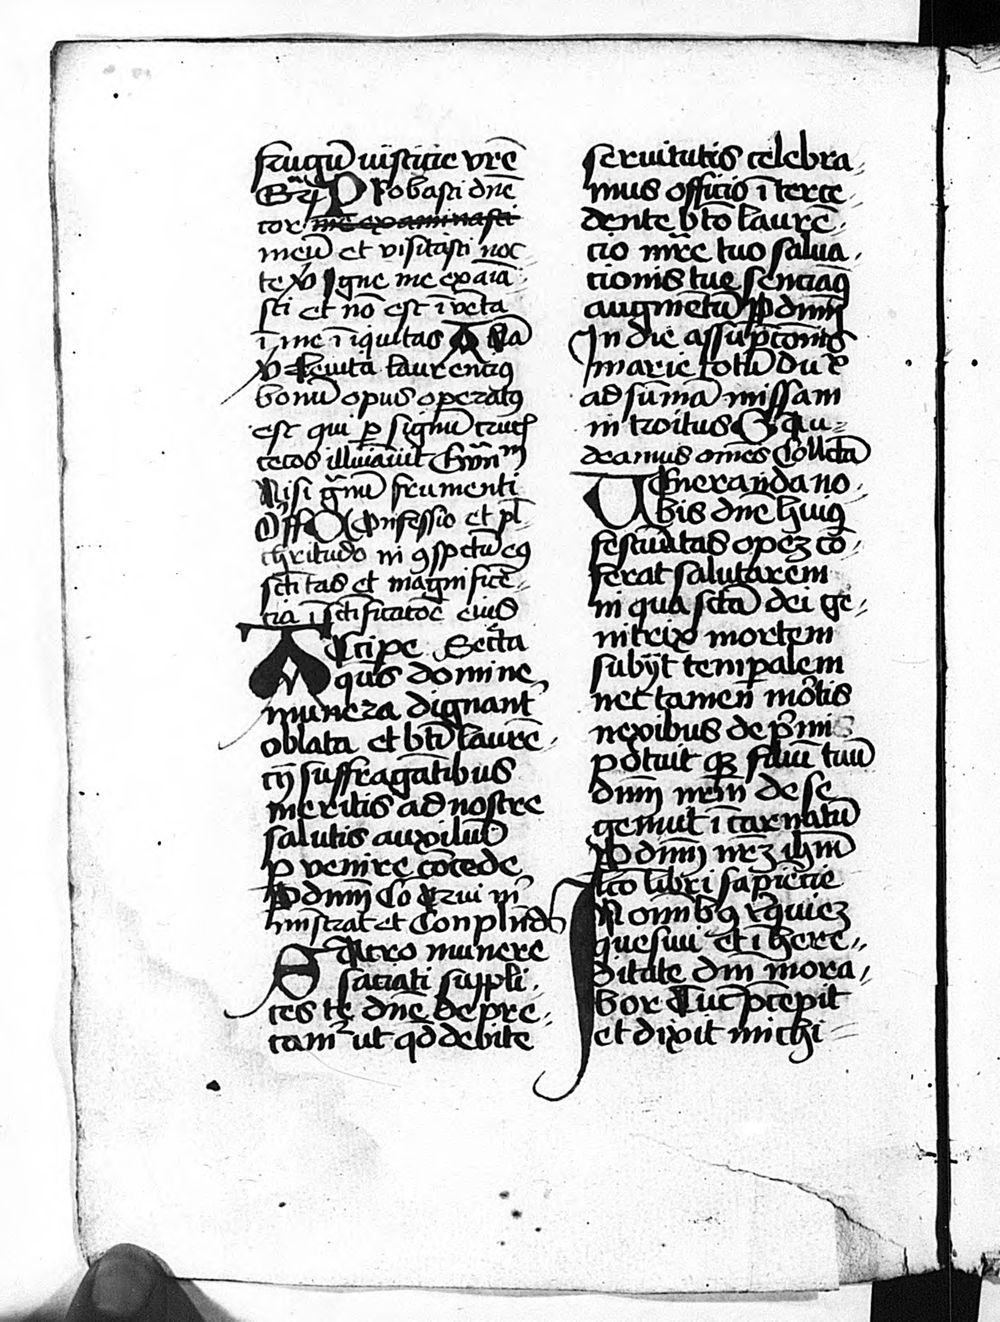 frugū iusticie vrē
Grā Probasti dnē
cor me examinasti
meū et visitasti noc
te v̉ Igne me exaīa
sti et nō est īvēta
ī me īiquitas A lā
v̉ Leuita laurencig
bonū opus operatg
est qui p signū cruc̄
cecos illūīauit Ewn̄m
Nisi g̉nū frumenti
Off Confessio et pl
chritudo in 9spctū eg
scītas et magnificē
cia ī scīficacōe eius
Accipe Secta
qus domine
munera dignant̄
oblata et btī laurē
cij suffragātibus
meritis ad nostre
salutis auxiliū
p venire cōcede
P dnm Cō Qui m
histrat et Conplnd
Sacro munere
saciati suppli
ces te dnē depre
cam² ut qd debite
seruitutis celebra
mus officio īterce
dente btō laurē
cio mr̄e tuo salua
cionis tue senciag
augmētū P dnm
In die assūpcōnis
marie totū du2
ad sūmā missam
introitus Gau
deamus om̄es Collcta
Veneranda no
bis dnē huig
festiuitas opez cō
ferat salutarem
in qua sctā dei ge
nitrix mortem
subijt temporalem
nec tamen mortis
nexibus deprimi
potuit q filiū tuū
dnm nrm de se
genuit īcarnatū
P dnm nrz ihm
lcō libri sapiēcie
In oīnibg rquiez
quesiui et ī here
ditate dni mora
bor Tuc pcepit
et dixit michi